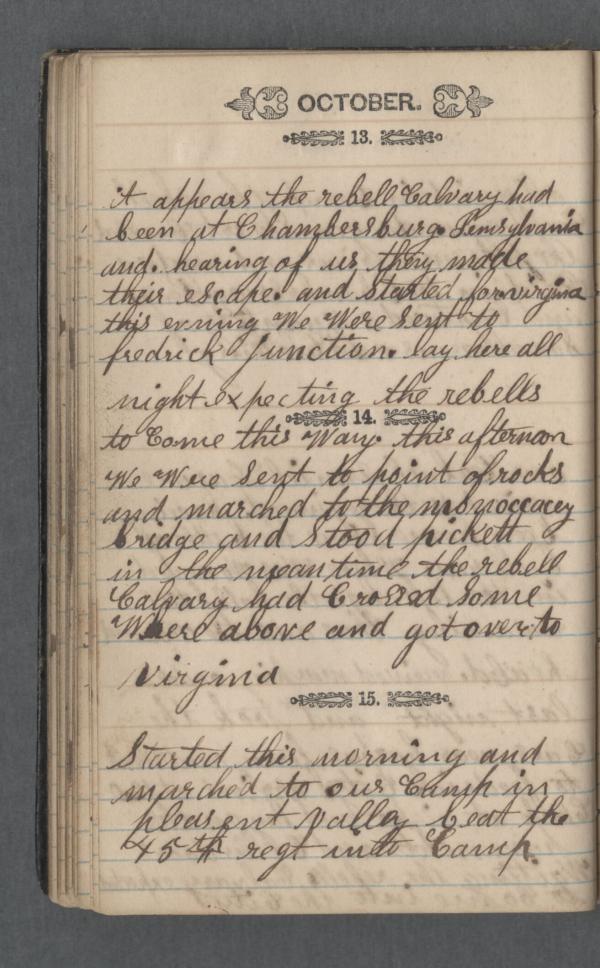 OCTOBER.
13.
it appears the rebell Calvary had
been at Chambersburg. Pemsylvania
and. hearing of us they made
their escape. and started for virginia
this evning We Were Sent to
fredrick Junction. lay here all
night expecting the rebells
14.
to Come this Way. this afternoon
We Were Sent to point of rocks
and marched to the monoccacey
bridge and Stood pickett
in the meantime the rebell
Calvary had Crossed Some
Where above and got over to
virginia
15.
Started this morning and
marched to our Camp in
pleasent valley beat the
45th regt into Camp.